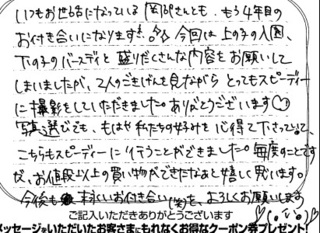 いつもお世話になっている岡Pさんとも、もう4年目の
お付き合いになります!今回は上の子の入園、
下の子のバースデイと盛りだくさんな内容をお願いして
しまいましたが、2人のごきげんを見ながらとってもスピーディー
に撮影をしていただきました。ありがとうございます
写真選びでも、もはや私たちの好みを心得て下さっていて、
こちらもスピーディーに行うことができました。毎度のことです
が、お値段以上の買い物ができたなぁと嬉しく思います。
今後も末永いお付き合い(笑)を、よろしくお願いします
ご記入いただきありがとうございます
メッセージいただいたお客さまにもれなくお得なクーポン券プレゼント!